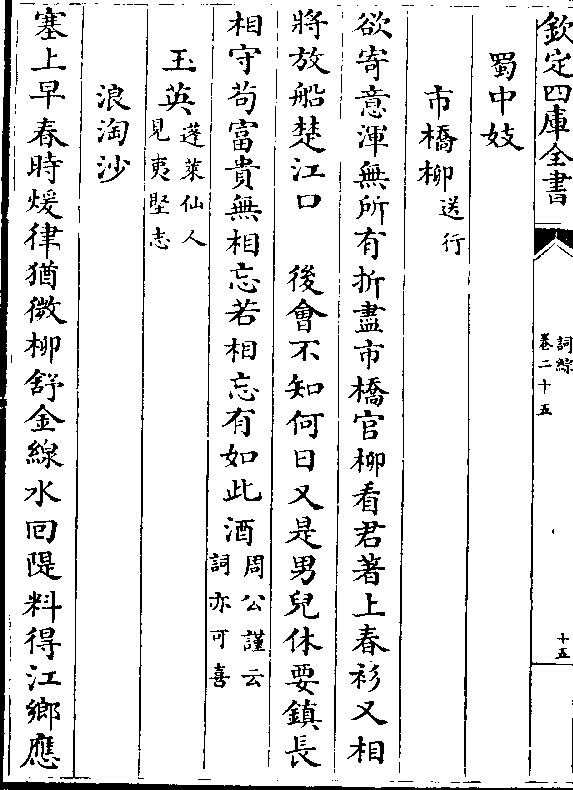 欽定四庫全書
詞綜
卷二十五
十五
蜀中妓
市橋柳送行
欲寄意渾無所有折盡市橋官柳看君著上春衫又相
將放船楚江口　後會不知何日又是男兒休要鎮長
相守苟富貴無相忘若相忘有如此酒周公謹云詞亦可喜
玉英蓬萊仙人見夷堅志
浪淘沙
塞上早春時煖律猶微柳舒金線水回隄料得江鄉應